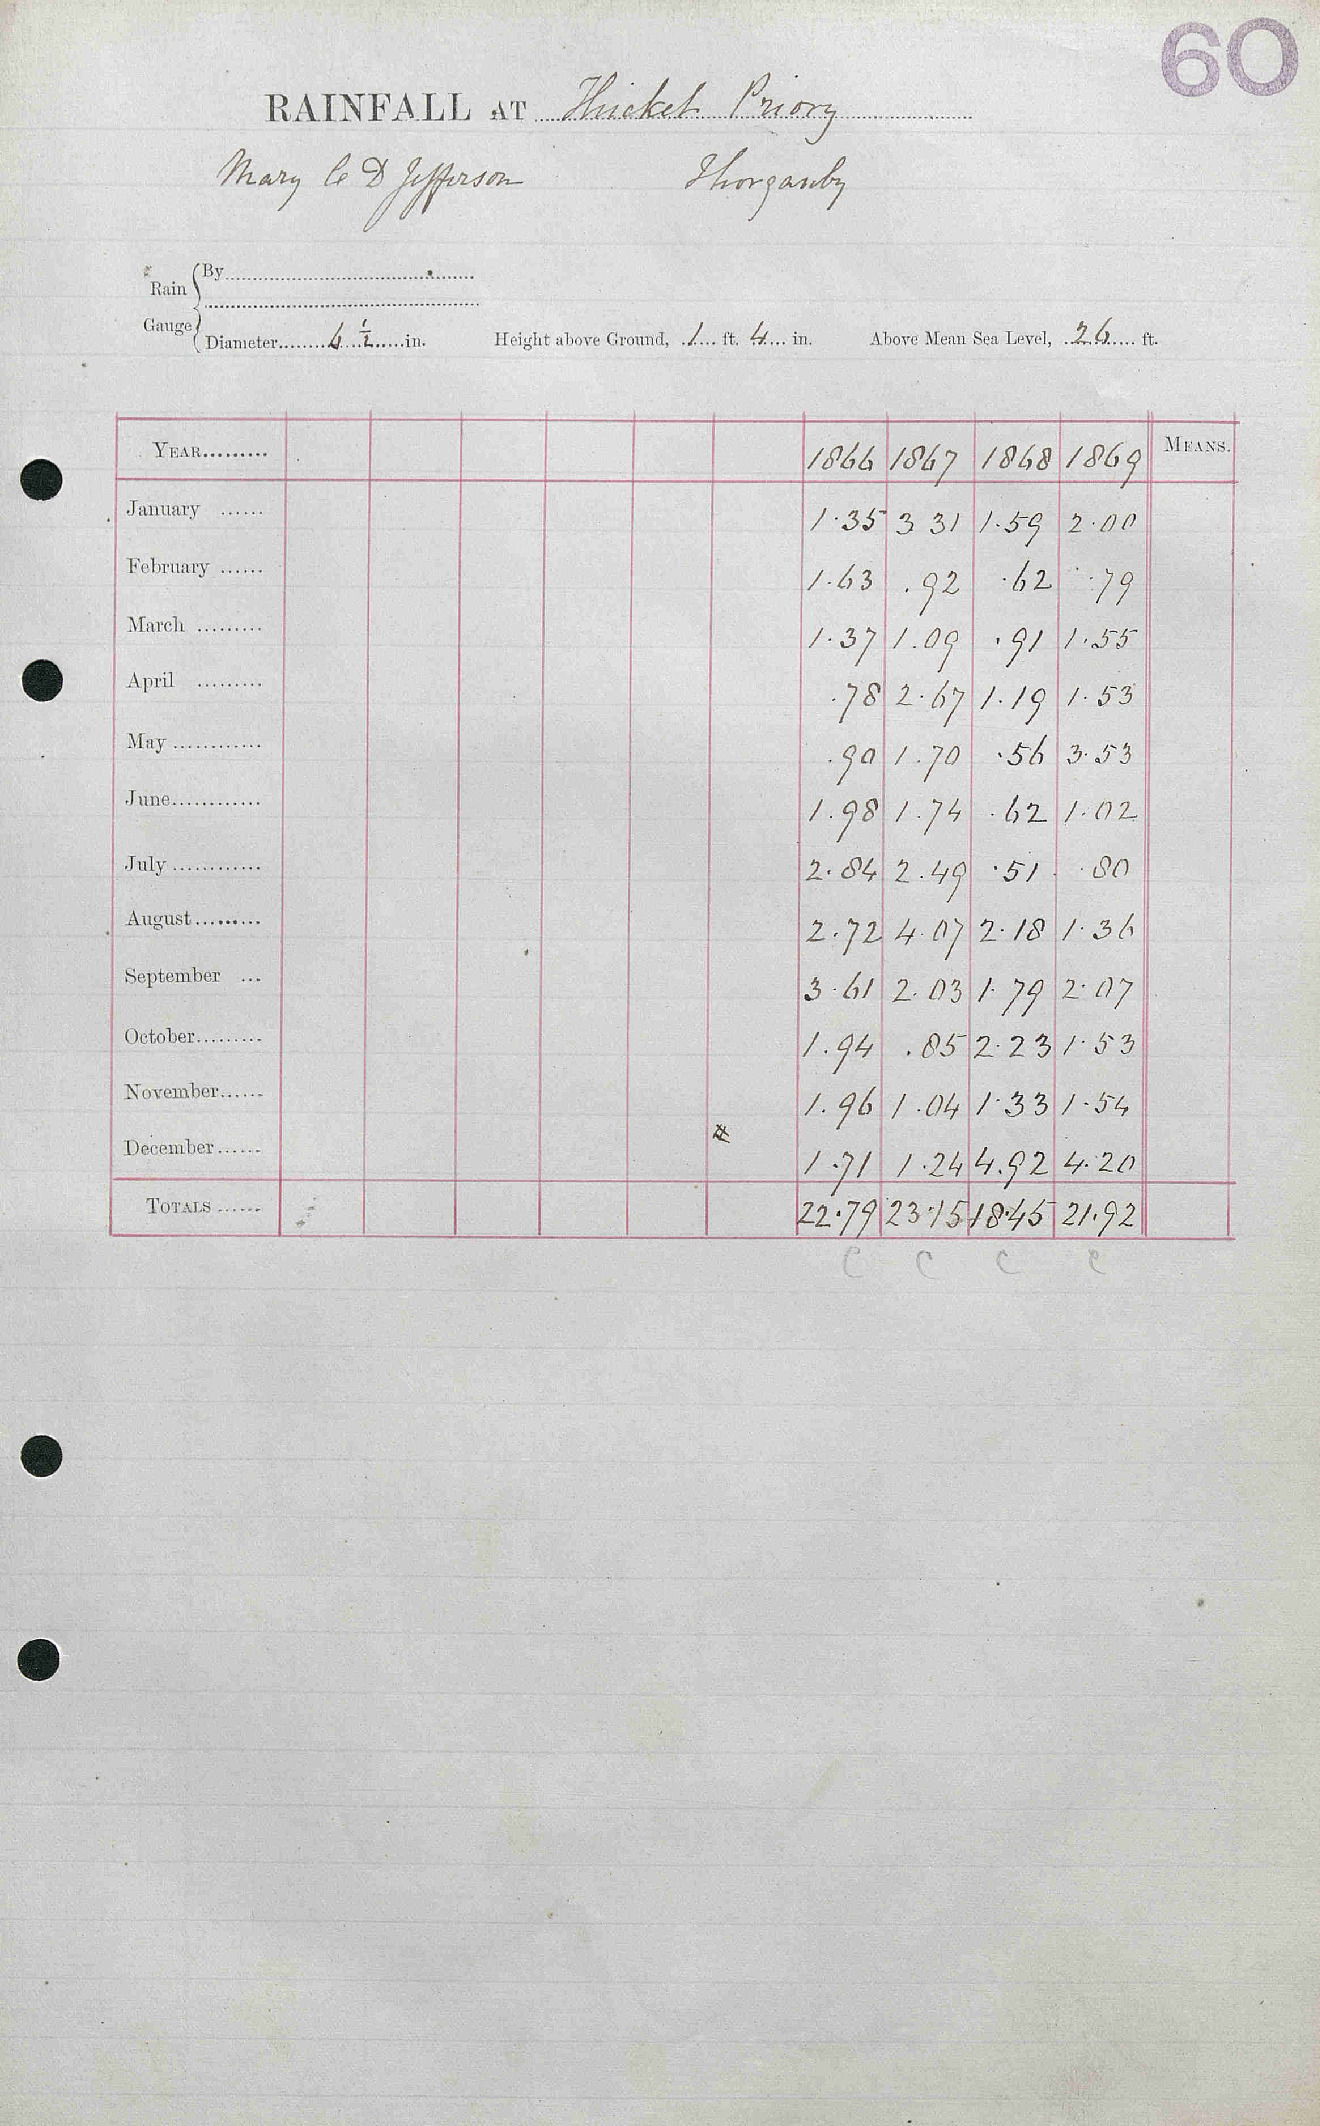 60
RAINFALL AT Thicket Priory
Mary C D Jefferson Thorganby
Rain Gauge
By
Diameter 6 1/2 in. Height above Ground, 1 ft. 4 in. Above Mean Sea Level, 26 ft.
YEAR 1866 1867 1868 1869 MEANS.
January 1.35 3 31 1.59 2.00
February 1.63 .92 .62 .79
March 1.37 1.09 .91 1.55
April .78 2.67 1.19 1.53
May .90 1.70 .56 3.53
June 1.98 1.74 .62 1.02
July 2.84 2.49 .51 .80
August 2.72 4.07 2.18 1.36
September 3.61 2.03 1.79 2.07
October 1.94 .85 2.23 1.53
November 1.96 1.04 1.33 1.54
December 1.71 1.24 4.92 4.20
TOTALS 22.79 23.15 18.45 21.92
C C C C